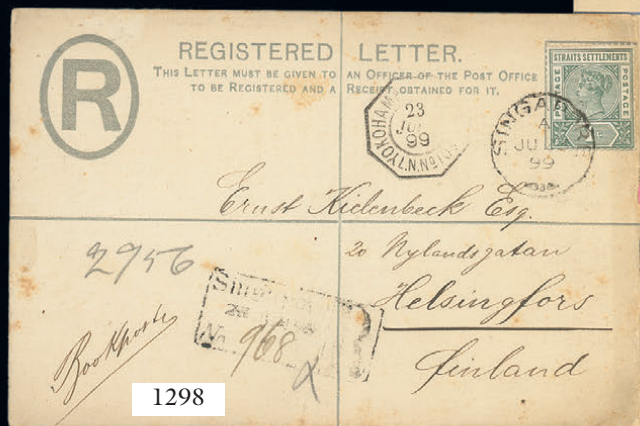 R
REGISTERED LETTER.
THIS LETTER MUST BE GIVEN TO AN OFFICER OF THE POST OFFICE
TO BE REGISTERED AND A RECEIPT OBTAINED FOR IT.
STRAITS SETTLEMENTS
POSTAGE
YOKOHAMA
23
99
SINGAPORE
A
JU
99
Ernst Kielenbeck Esq.
20 Nylandsgatan
Helsingfors
Finland
2956
No. 968
Bookpost
1298